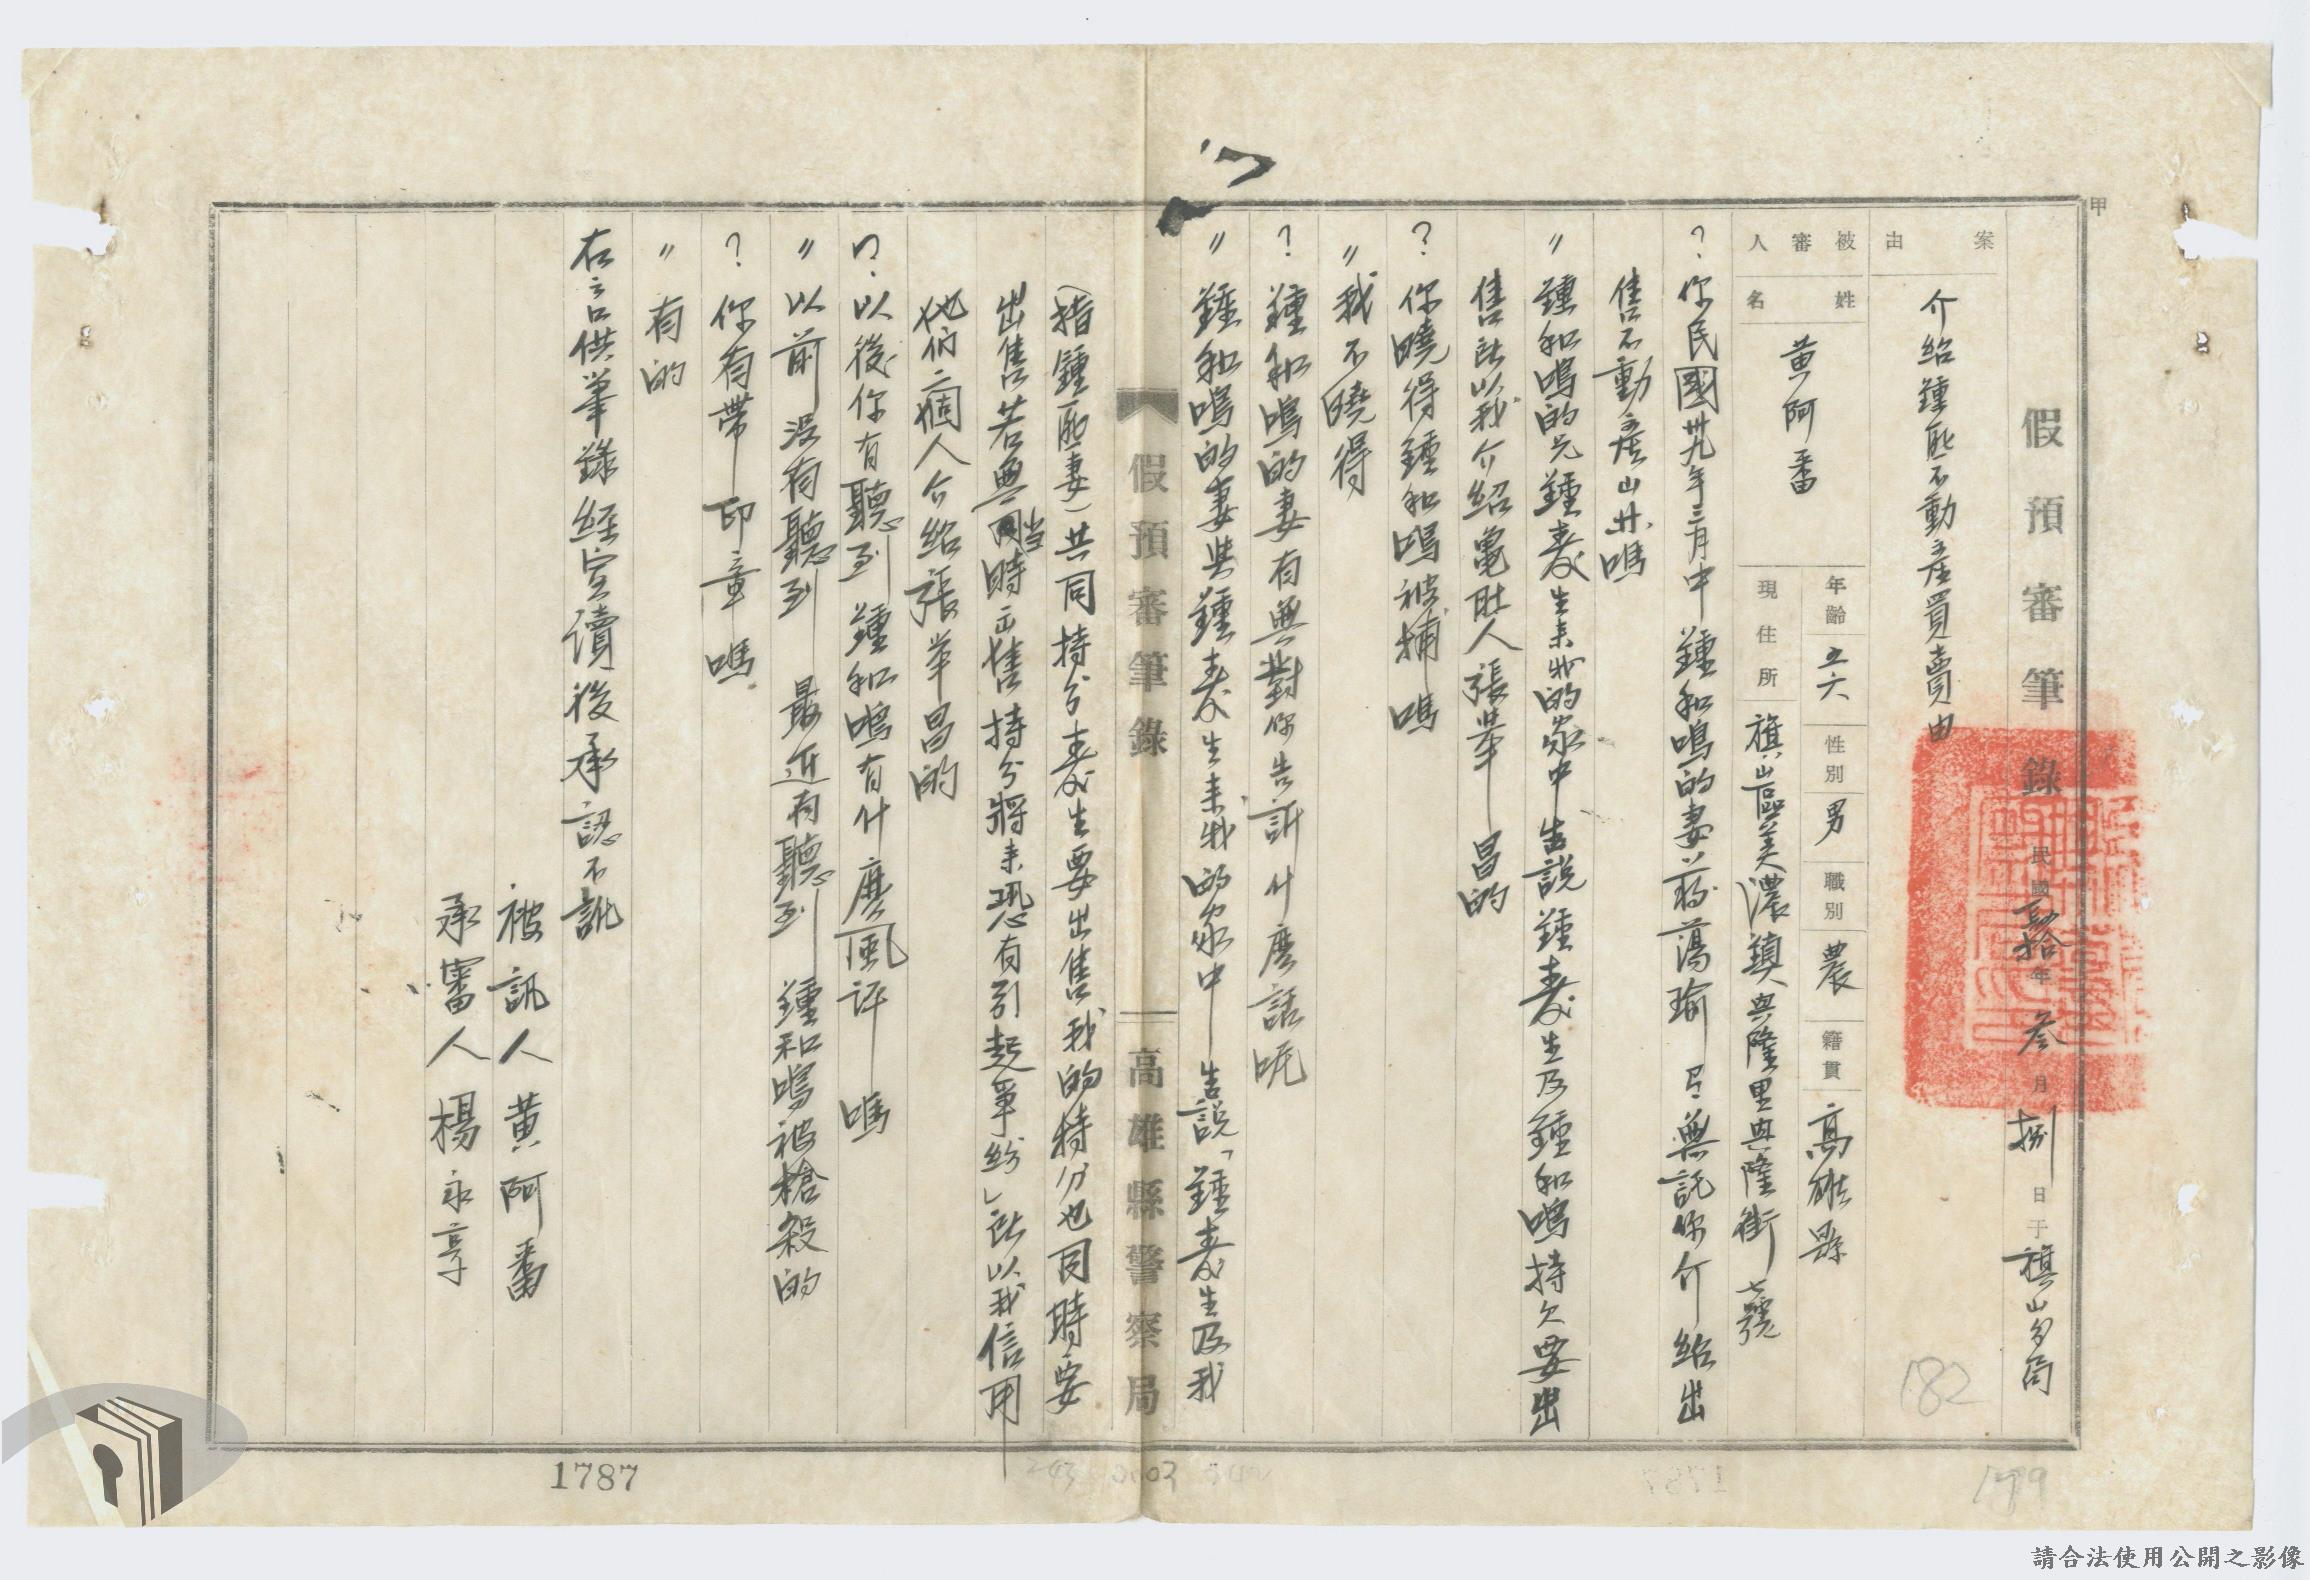 甲
假預審筆錄 民國肆拾年叁月捌日于旗山分局
案由
介紹鍾熙不動產買賣由
被審人
姓名 黃阿番
年齡 五六 性別 男 職別 農 籍貫 高雄縣
現住所 旗山區美濃鎮興隆里興隆街七號
? 你民國卅九年三月中鍾和鳴的妻蔣蘊瑜有無託你介紹出
售不動產山林嗎
〃鍾和鳴的兄鍾壽生來我的家中告說鍾壽生及鍾和鳴持欠要出
售所以我介紹龜肚人張華昌的
? 你曉得鍾和鳴被捕嗎
〃我不曉得
? 鍾和鳴的妻有無對你告訴什麼話呢
〃鍾和鳴的妻與鍾壽生來我的家中告說「鍾壽生及我
假預審筆錄 高雄縣警察局
(指鍾熙妻)共同持分壽生要出售我的持分也同時要
出售若無當時出售持分將來恐有引起爭紛」所以我信用
他們二個人介紹張華昌的
? 以後你有聽到鍾和鳴有什麼風評嗎
〃以前沒有聽到 最近有聽到鍾和鳴被槍殺的
? 你有帶印章嗎
〃有的
右言供筆錄經宣讀後承認不訛
被訊人黃阿番
承審人楊永享
182
1787
199
請合法使用公開之影像